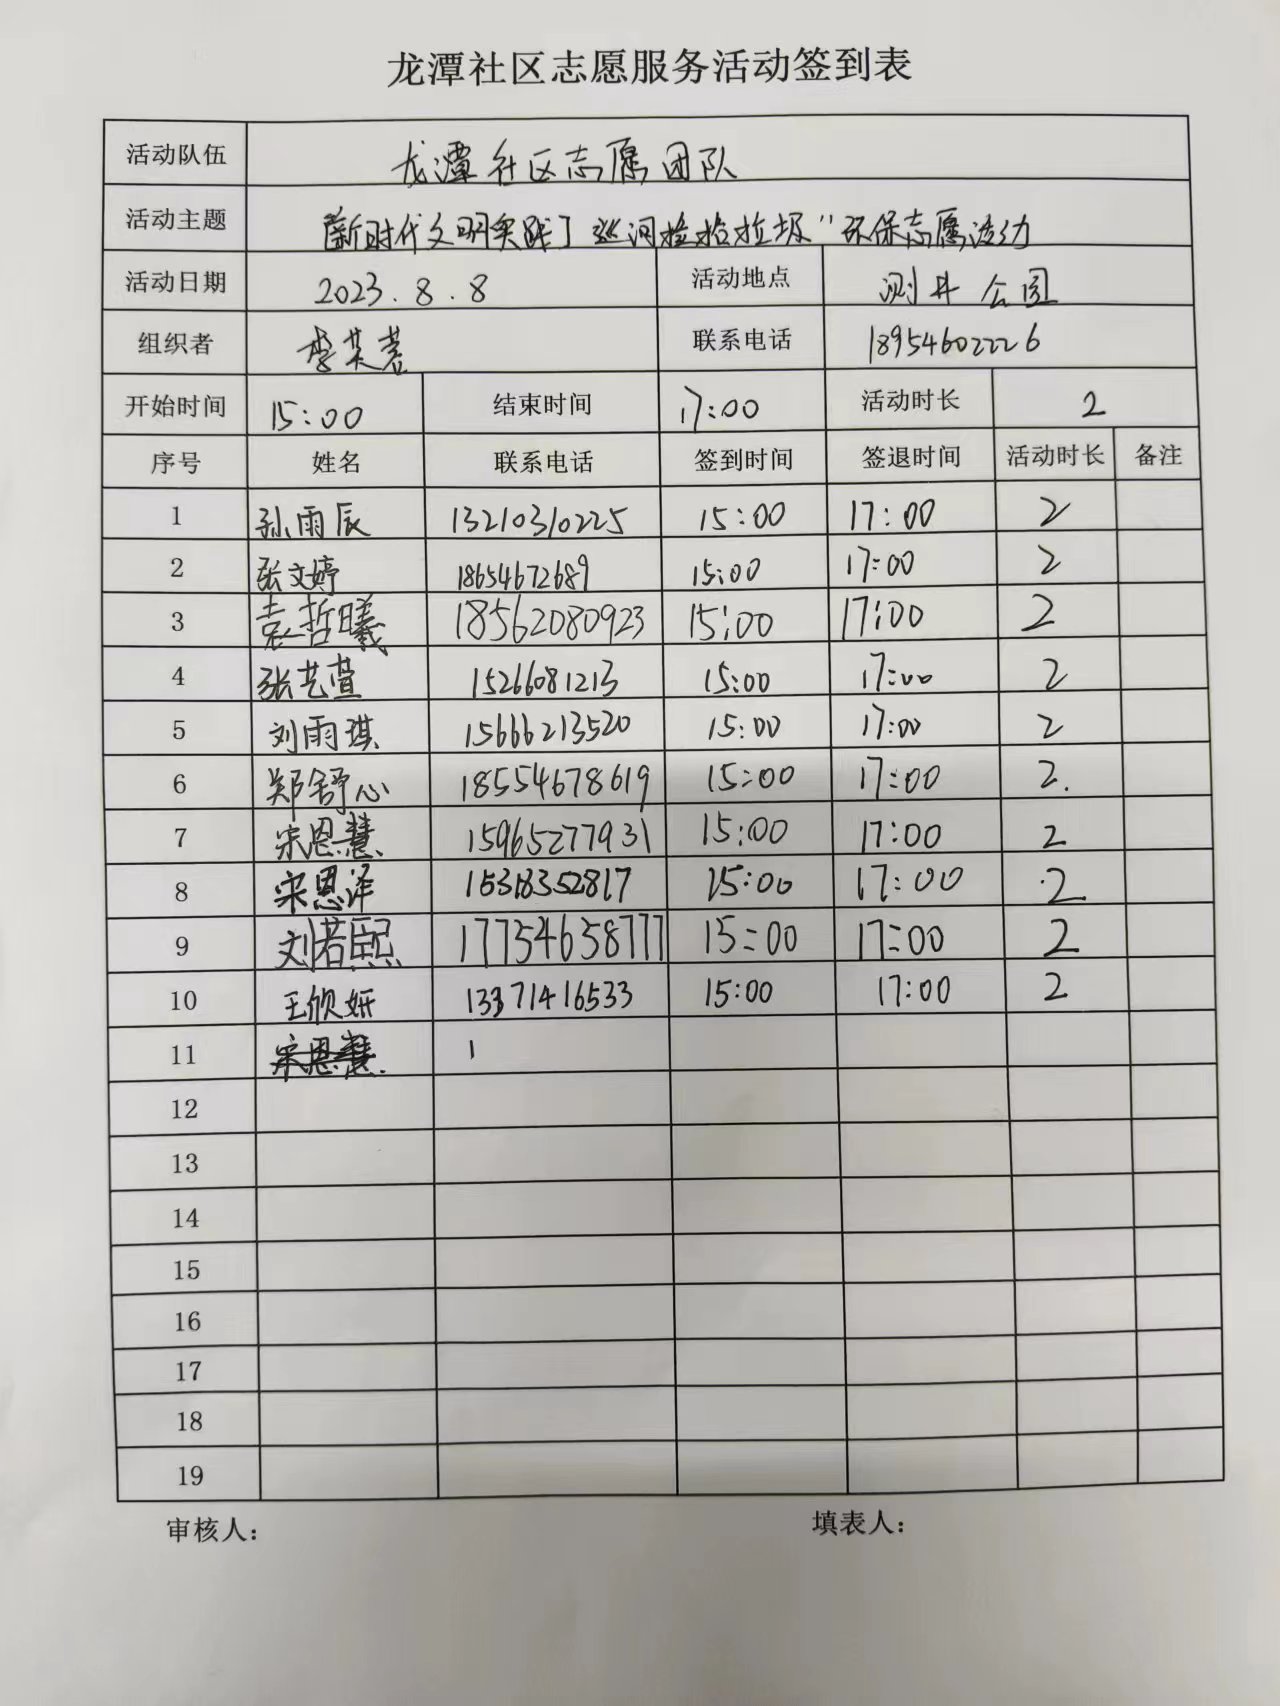 龙潭社区志愿服务活动签到表
活动队伍 龙潭社区志愿团队
活动主题 新时代文明实践 巡河捡拾垃圾"环保志愿活动
活动日期 2023.8.8 活动地点 测井公园
组织者 李英蓉 联系电话 18954602226
开始时间 15:00 结束时间 17:00 活动时长 2
序号 姓名 联系电话 签到时间 签退时间 活动时长 备注
1 孙雨辰 13210310225 15:00 17:00 2
2 张文婷 18654672689 15:00 17:00 2
3 袁哲曦 18562080923 15:00 17:00 2
4 张艺萱 15266081213 15:00 17:00 2
5 刘雨琪 15666213520 15:00 17:00 2
6 郑舒心 18554678619 15:00 17:00 2.
7 宋恩慧 15965277931 15:00 17:00 2
8 宋恩泽 15318352817 15:00 17:00 2
9 刘若熙 17754658777 15:00 17:00 2
10 王欣妍 13371416533 15:00 17:00 2
11 宋恩慧 1
12
13
14
15
16
17
18
19
审核人: 填表人: